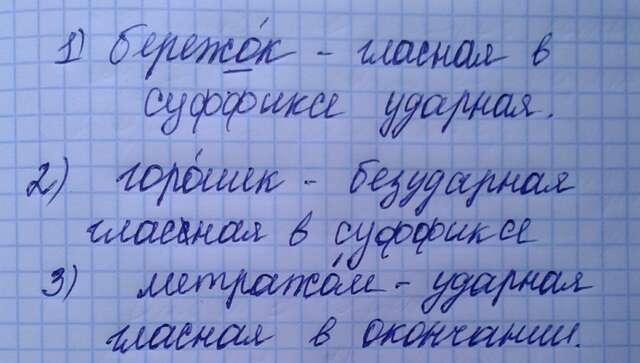 1) бережо́к - гласная в
суффиксе ударная.
2) горо́шек - безударная
гласная в суффиксе
3) метражо́м - ударная
гласная в окончании.